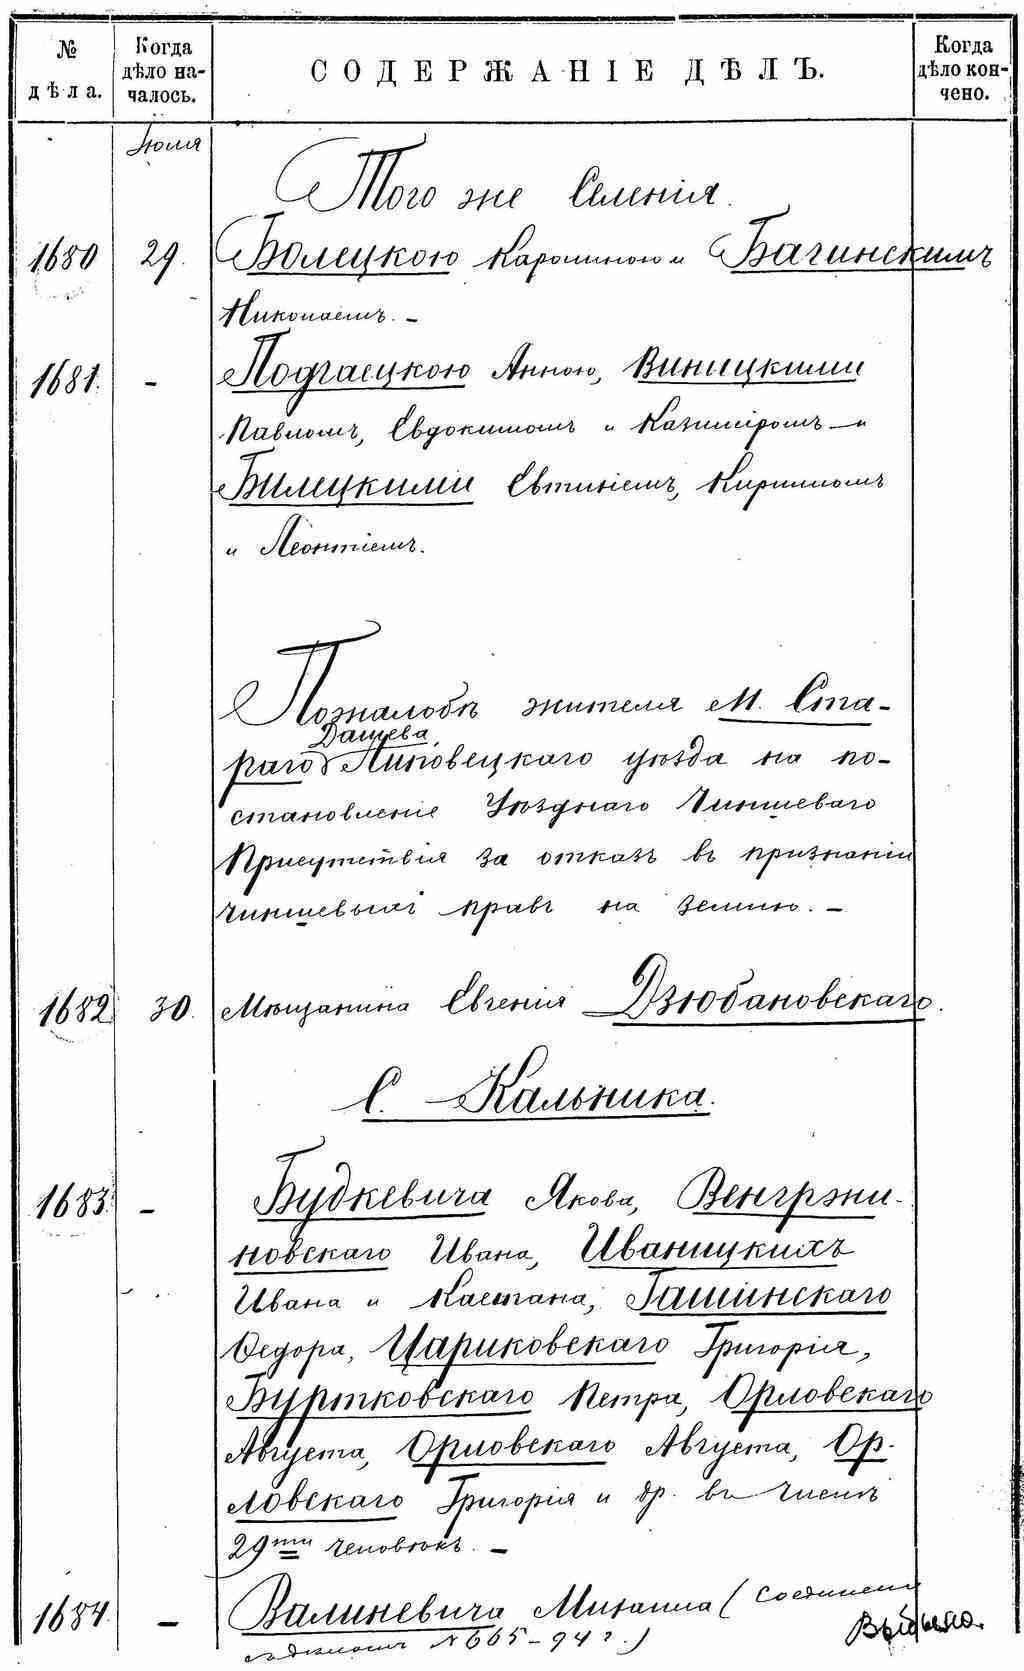 № дѣла.
Когда дѣло началось.
СОДЕРЖАНІЕ ДѢЛЪ.
Когда дѣло кончено.
Іюля
Того же Селенія.
1680 29. Болецкою Каролиною и Багинскимъ
Николаемъ. –
1681. – Подгаецкою Анною, Виницкими
Павломъ, Евдокимомъ и Казимиромъ – и
Билецкими Евтихіемъ, Кириломъ
и Леонтіемъ.
По жалобѣ жителя М. Ста-
раго Дашева, Липовецкаго уѣзда на по-
становленіе Уѣзднаго Чиншеваго
Присутствія за отказъ въ признаніи
чиншевыхъ правъ на землю. –
1682 30. Мѣщанина Евгенія Дзюбановскаго.
С. Кальника.
1683. – Будкевича Якова, Венгржи-
новскаго Ивана, Иваницкихъ
Ивана и Каетана, Гашинскаго
Ѳедора, Цариковскаго Григорія,
Буртковскаго Петра, Орловскаго
Августа, Орловскаго Августа, Ор-
ловскаго Григорія и др. въ числѣ
29ти человѣкъ. –
1684. – Валиневича Михаила (Соединено
съ дѣломъ № 665–94 г.) Выбыло.